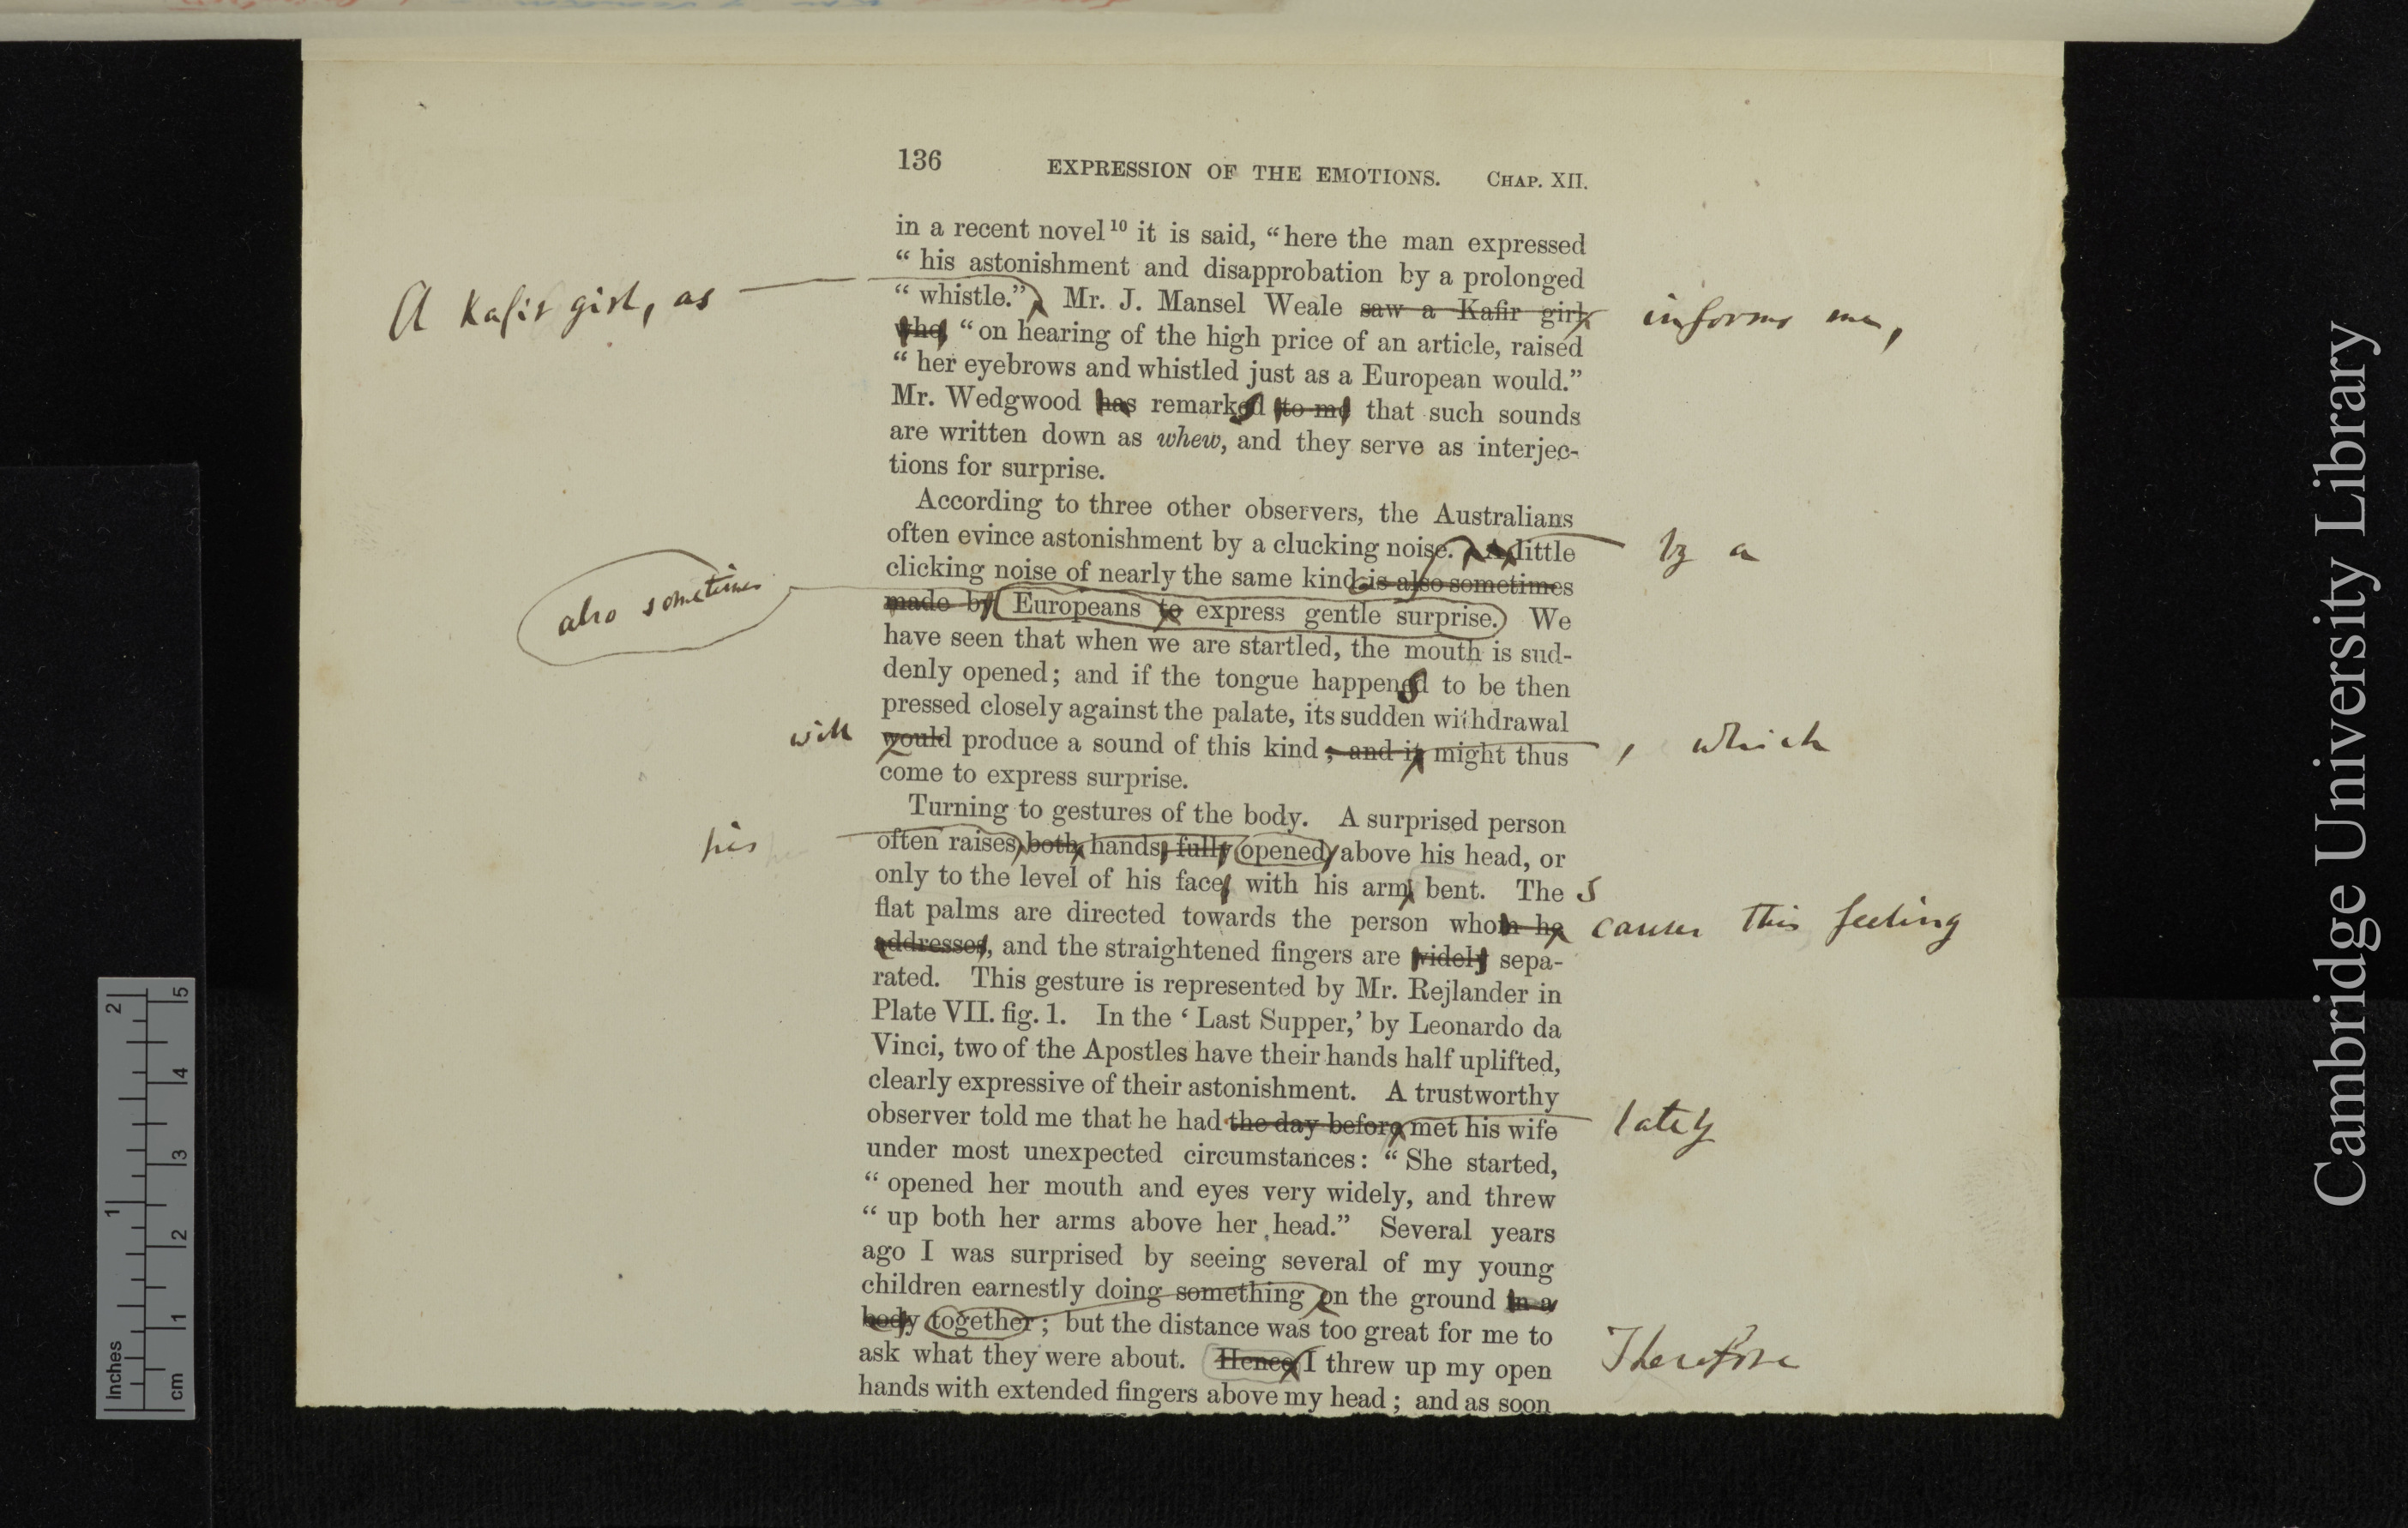 136 EXPRESSION OF THE EMOTIONS. CHAP. XII.
in a recent novel¹⁰ it is said, “here the man expressed
“his astonishment and disapprobation by a prolonged
A Kafir girl, as
“whistle.” Mr. J. Mansel Weale saw a Kafir girl
informs me,
who “on hearing of the high price of an article, raised
“her eyebrows and whistled just as a European would.”
Mr. Wedgwood has remarked to me that such sounds
are written down as whew, and they serve as interjec-
tions for surprise.
According to three other observers, the Australians
often evince astonishment by a clucking noise. A little
by a
clicking noise of nearly the same kind is also sometimes
also sometimes
made by Europeans to express gentle surprise. We
have seen that when we are startled, the mouth is sud-
denly opened; and if the tongue happened to be then
s
pressed closely against the palate, its sudden withdrawal
will
would produce a sound of this kind; and it might thus
, which
come to express surprise.
Turning to gestures of the body. A surprised person
his
often raises both hands, fully opened, above his head, or
only to the level of his face, with his arm bent. The
s
flat palms are directed towards the person whom he
causes this feeling
addresses, and the straightened fingers are widely sepa-
rated. This gesture is represented by Mr. Rejlander in
Plate VII. fig. 1. In the ‘Last Supper,’ by Leonardo da
Vinci, two of the Apostles have their hands half uplifted,
clearly expressive of their astonishment. A trustworthy
observer told me that he had the day before met his wife
lately
under most unexpected circumstances: “She started,
“opened her mouth and eyes very widely, and threw
“up both her arms above her head.” Several years
ago I was surprised by seeing several of my young
children earnestly doing something on the ground in a
body together; but the distance was too great for me to
ask what they were about. Hence I threw up my open
Therefore
hands with extended fingers above my head; and as soon
Cambridge University Library
Inches 1 2
cm 1 2 3 4 5